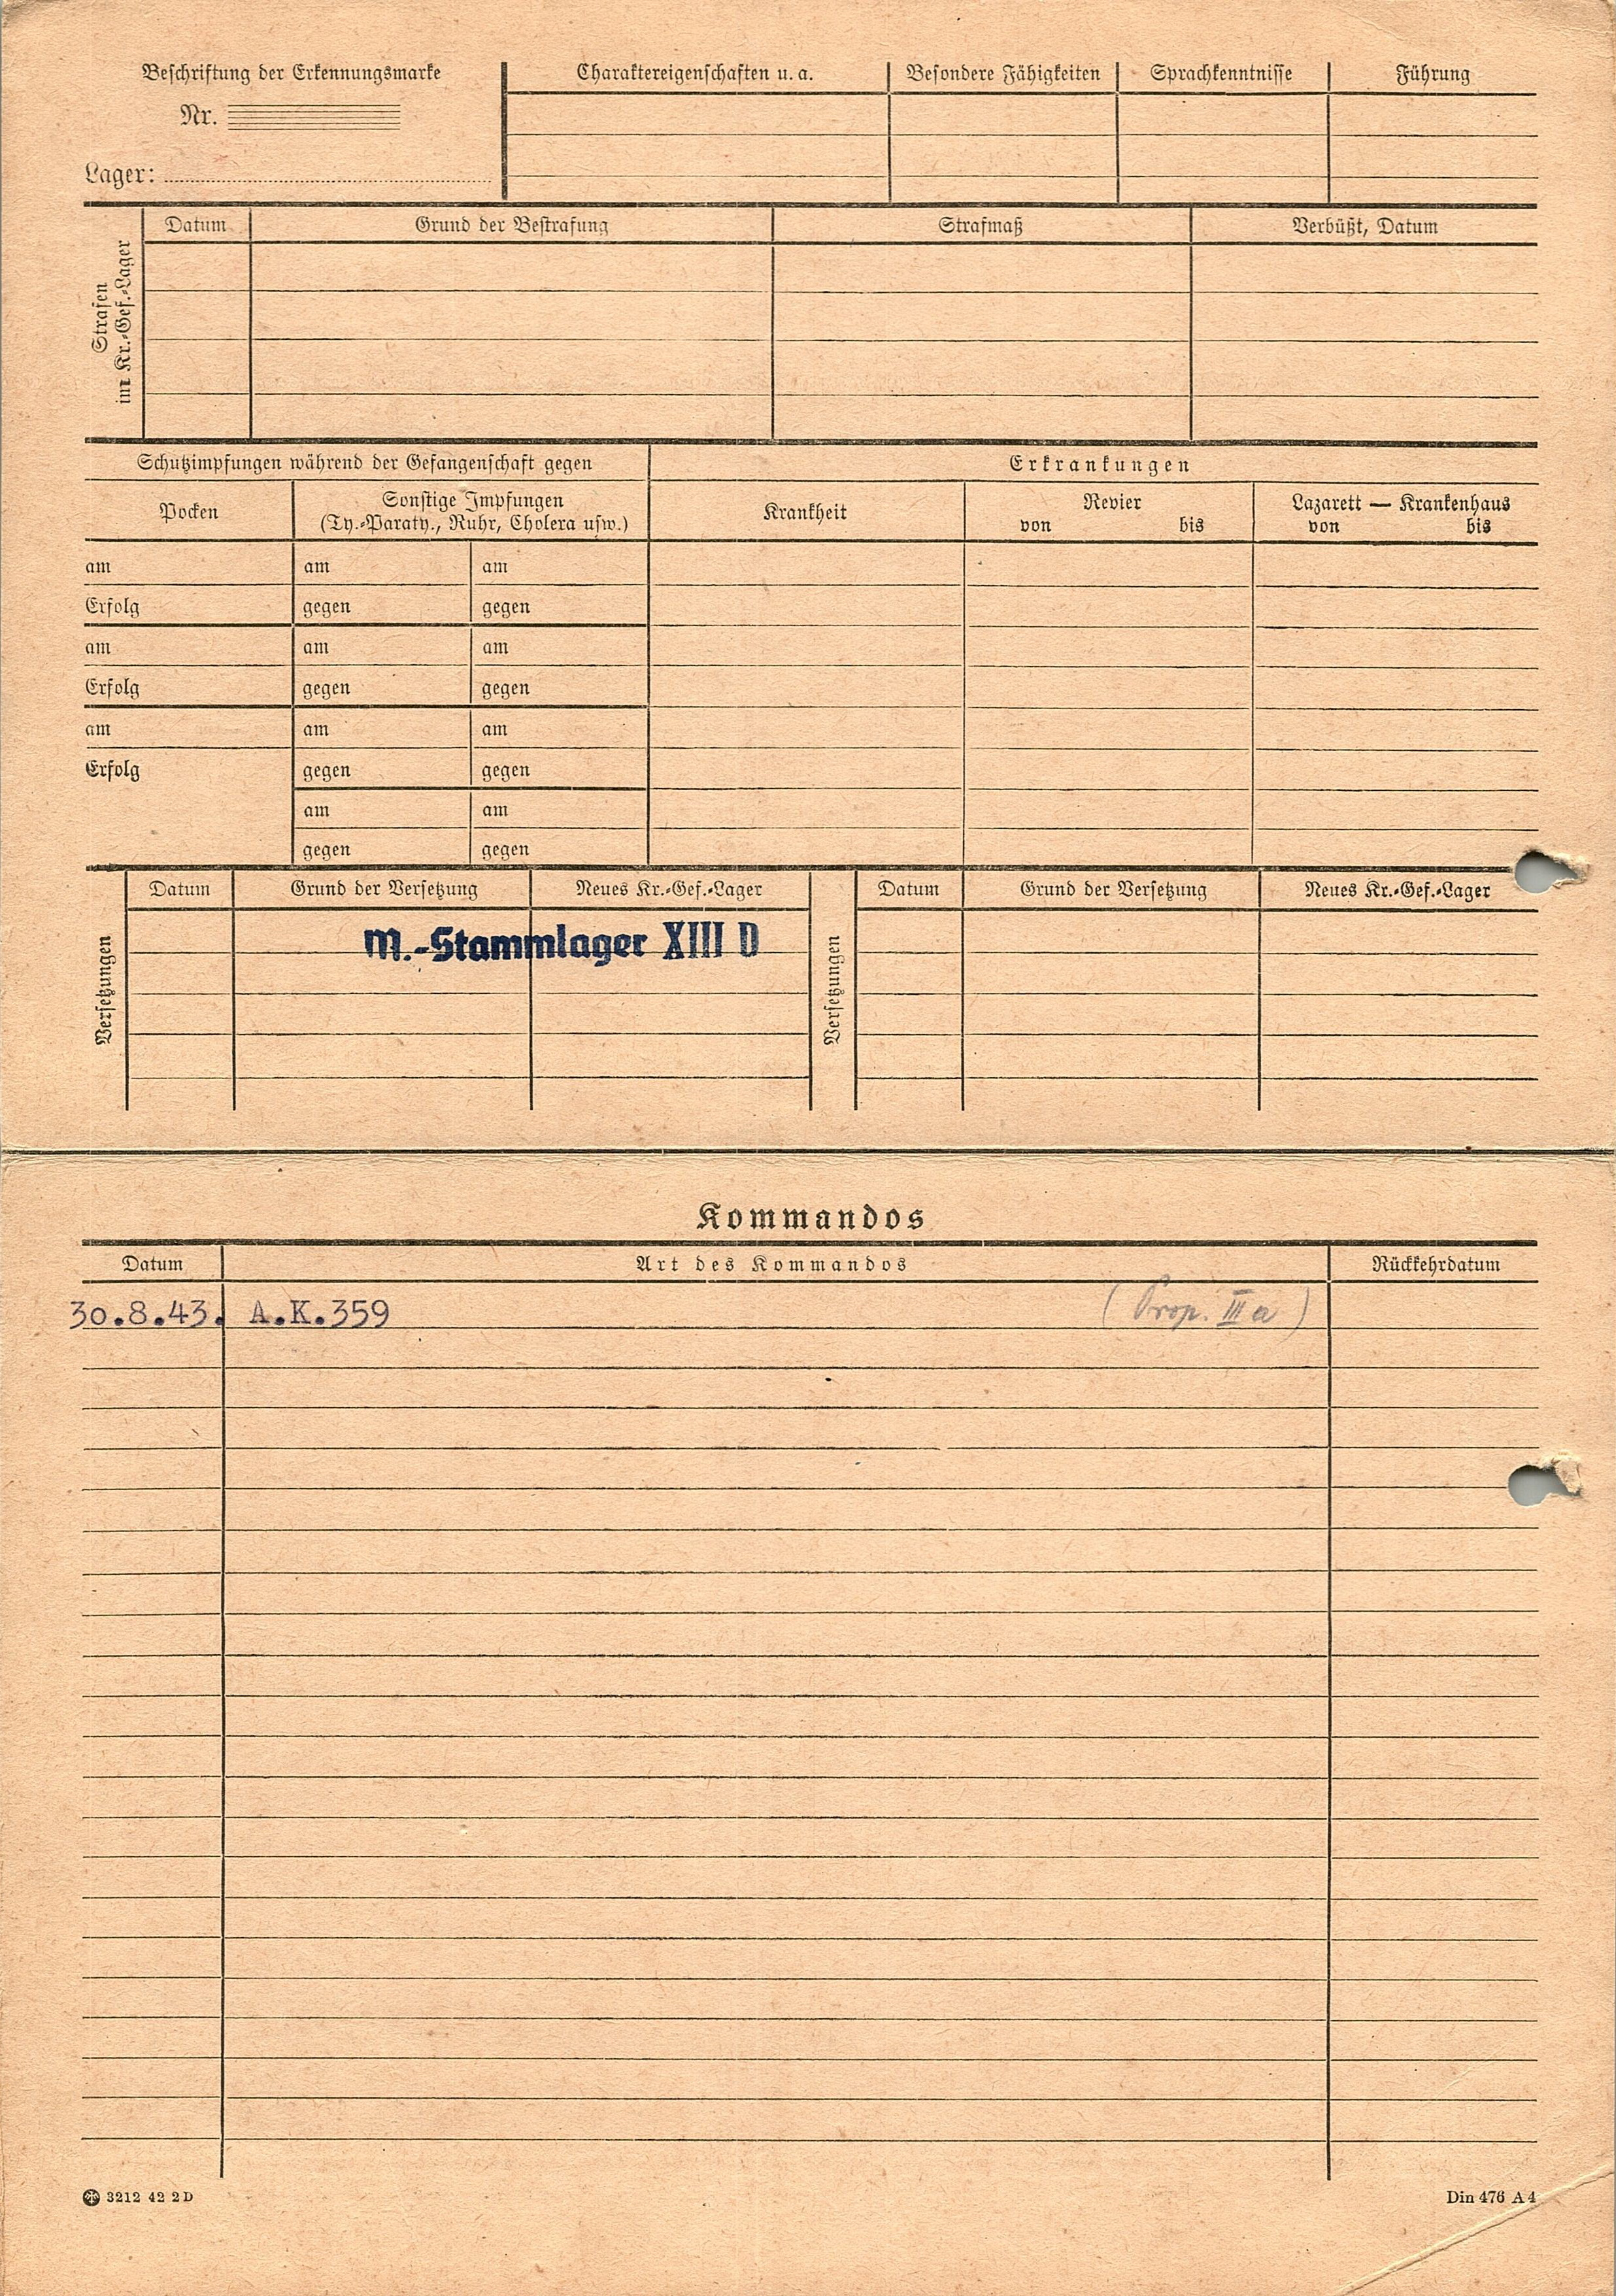 Beschriftung der Erkennungsmarke
Nr.
Lager:
Charaktereigenschaften u. a. Besondere Fähigkeiten Sprachkenntnisse Führung
Strafen
im Kr.-Gef.-Lager
Datum Grund der Bestrafung Strafmaß Verbüßt, Datum
Schutzimpfungen während der Gefangenschaft gegen Erkrankungen
Pocken
Sonstige Impfungen
(Ty.-Paraty., Ruhr, Cholera usw.)
Krankheit
Revier
von bis
Lazarett — Krankenhaus
von bis
am am am
Erfolg gegen gegen
am am am
Erfolg gegen gegen
am am am
Erfolg gegen gegen
am am
gegen gegen
Versetzungen
Datum Grund der Versetzung Neues Kr.-Gef.-Lager
M.-Stammlager XIII D
Versetzungen
Datum Grund der Versetzung Neues Kr.-Gef.-Lager
Kommandos
Datum Art des Kommandos Rückkehrdatum
30.8.43. A.K.359 (Prop. III a)
3212 42 2 D
Din 476 A 4